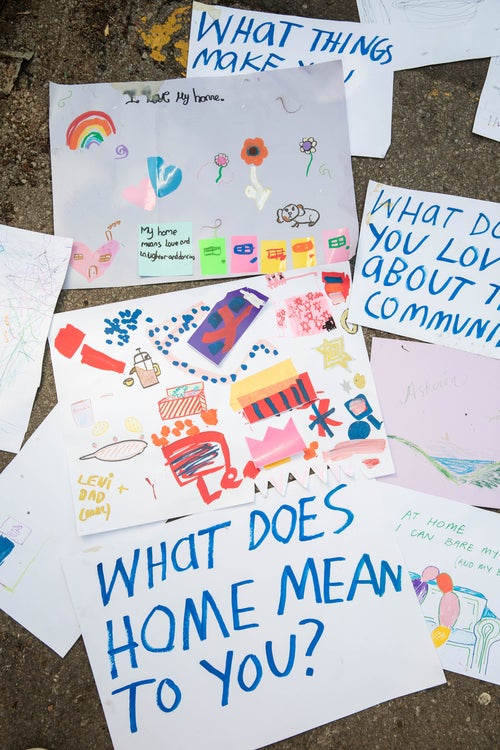 WHAT THINGS
MAKE YOU
I love my home.
My home
means love and
laughter and dancing
WHAT DO
YOU LOV
ABOUT T
COMMUNI
LEVI
DAD +
AT HOME
I CAN BARE MY
(AND MY
WHAT DOES
HOME MEAN
TO YOU?